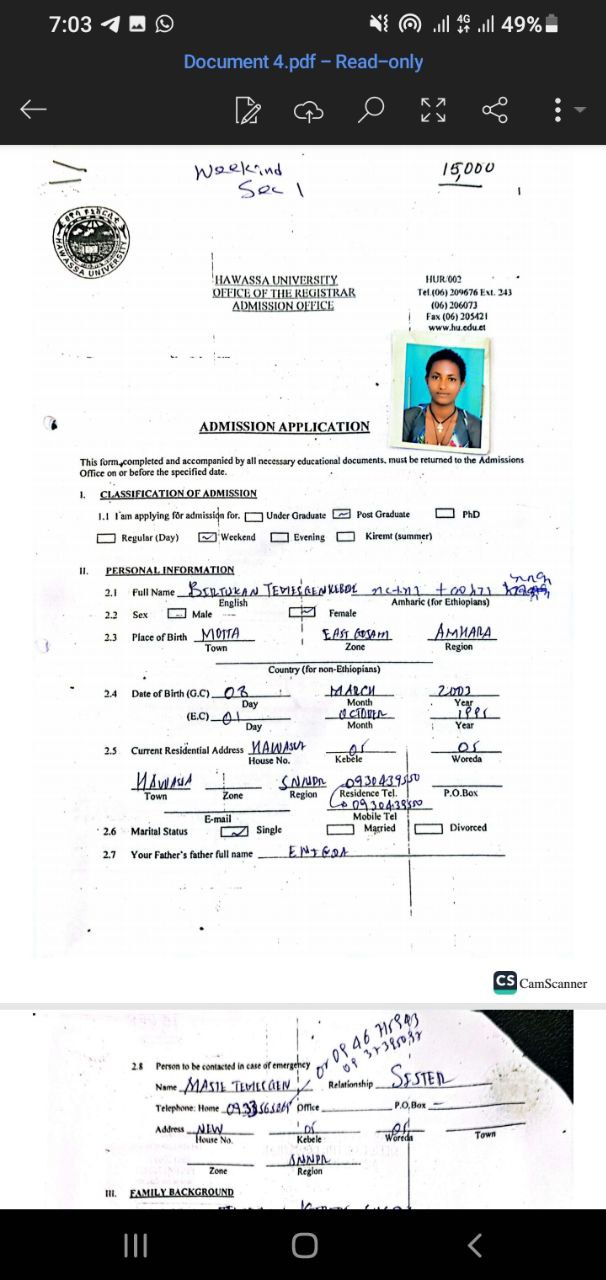 7:03
4G
49%
Document 4.pdf – Read-only
Weekind
Sec 1
15,000
HAWASSA UNIVERSITY
HAWASSA UNIVERSITY
OFFICE OF THE REGISTRAR
ADMISSION OFFICE
HUR/002
Tel.(06) 209676 Ext. 243
(06) 206073
Fax (06) 205421
www.hu.edu.et
ADMISSION APPLICATION
This form, completed and accompanied by all necessary educational documents, must be returned to the Admissions
Office on or before the specified date.
I. CLASSIFICATION OF ADMISSION
1.1 I am applying for admission for. Under Graduate Post Graduate PhD
Regular (Day) Weekend Evening Kiremt (summer)
II. PERSONAL INFORMATION
2.1 Full Name BIRTUKAN TEMESGEN KEBDE
English Amharic (for Ethiopians)
2.2 Sex Male Female
2.3 Place of Birth MOTTA EAST GOJAM AMHARA
Town Zone Region
Country (for non-Ethiopians)
2.4 Date of Birth (G.C) 03 MARCH 2003
Day Month Year
(E.C) 01 OCTOBER
Day Month Year
2.5 Current Residential Address HAWASSA 05 05
House No. Kebele Woreda
HAWASSA SNNPR 0930439550
Town Zone Region Residence Tel. P.O.Box
E-mail Mobile Tel
2.6 Marital Status Single Married Divorced
2.7 Your Father's father full name
CS CamScanner
2.8 Person to be contacted in case of emergency or
Name MASTE TEMESGEN Relationship SISTER
Telephone: Home Office P.O,Box
Address NEW 05 05
House No. Kebele Woreda Town
SNNPR
Zone Region
III. FAMILY BACKGROUND